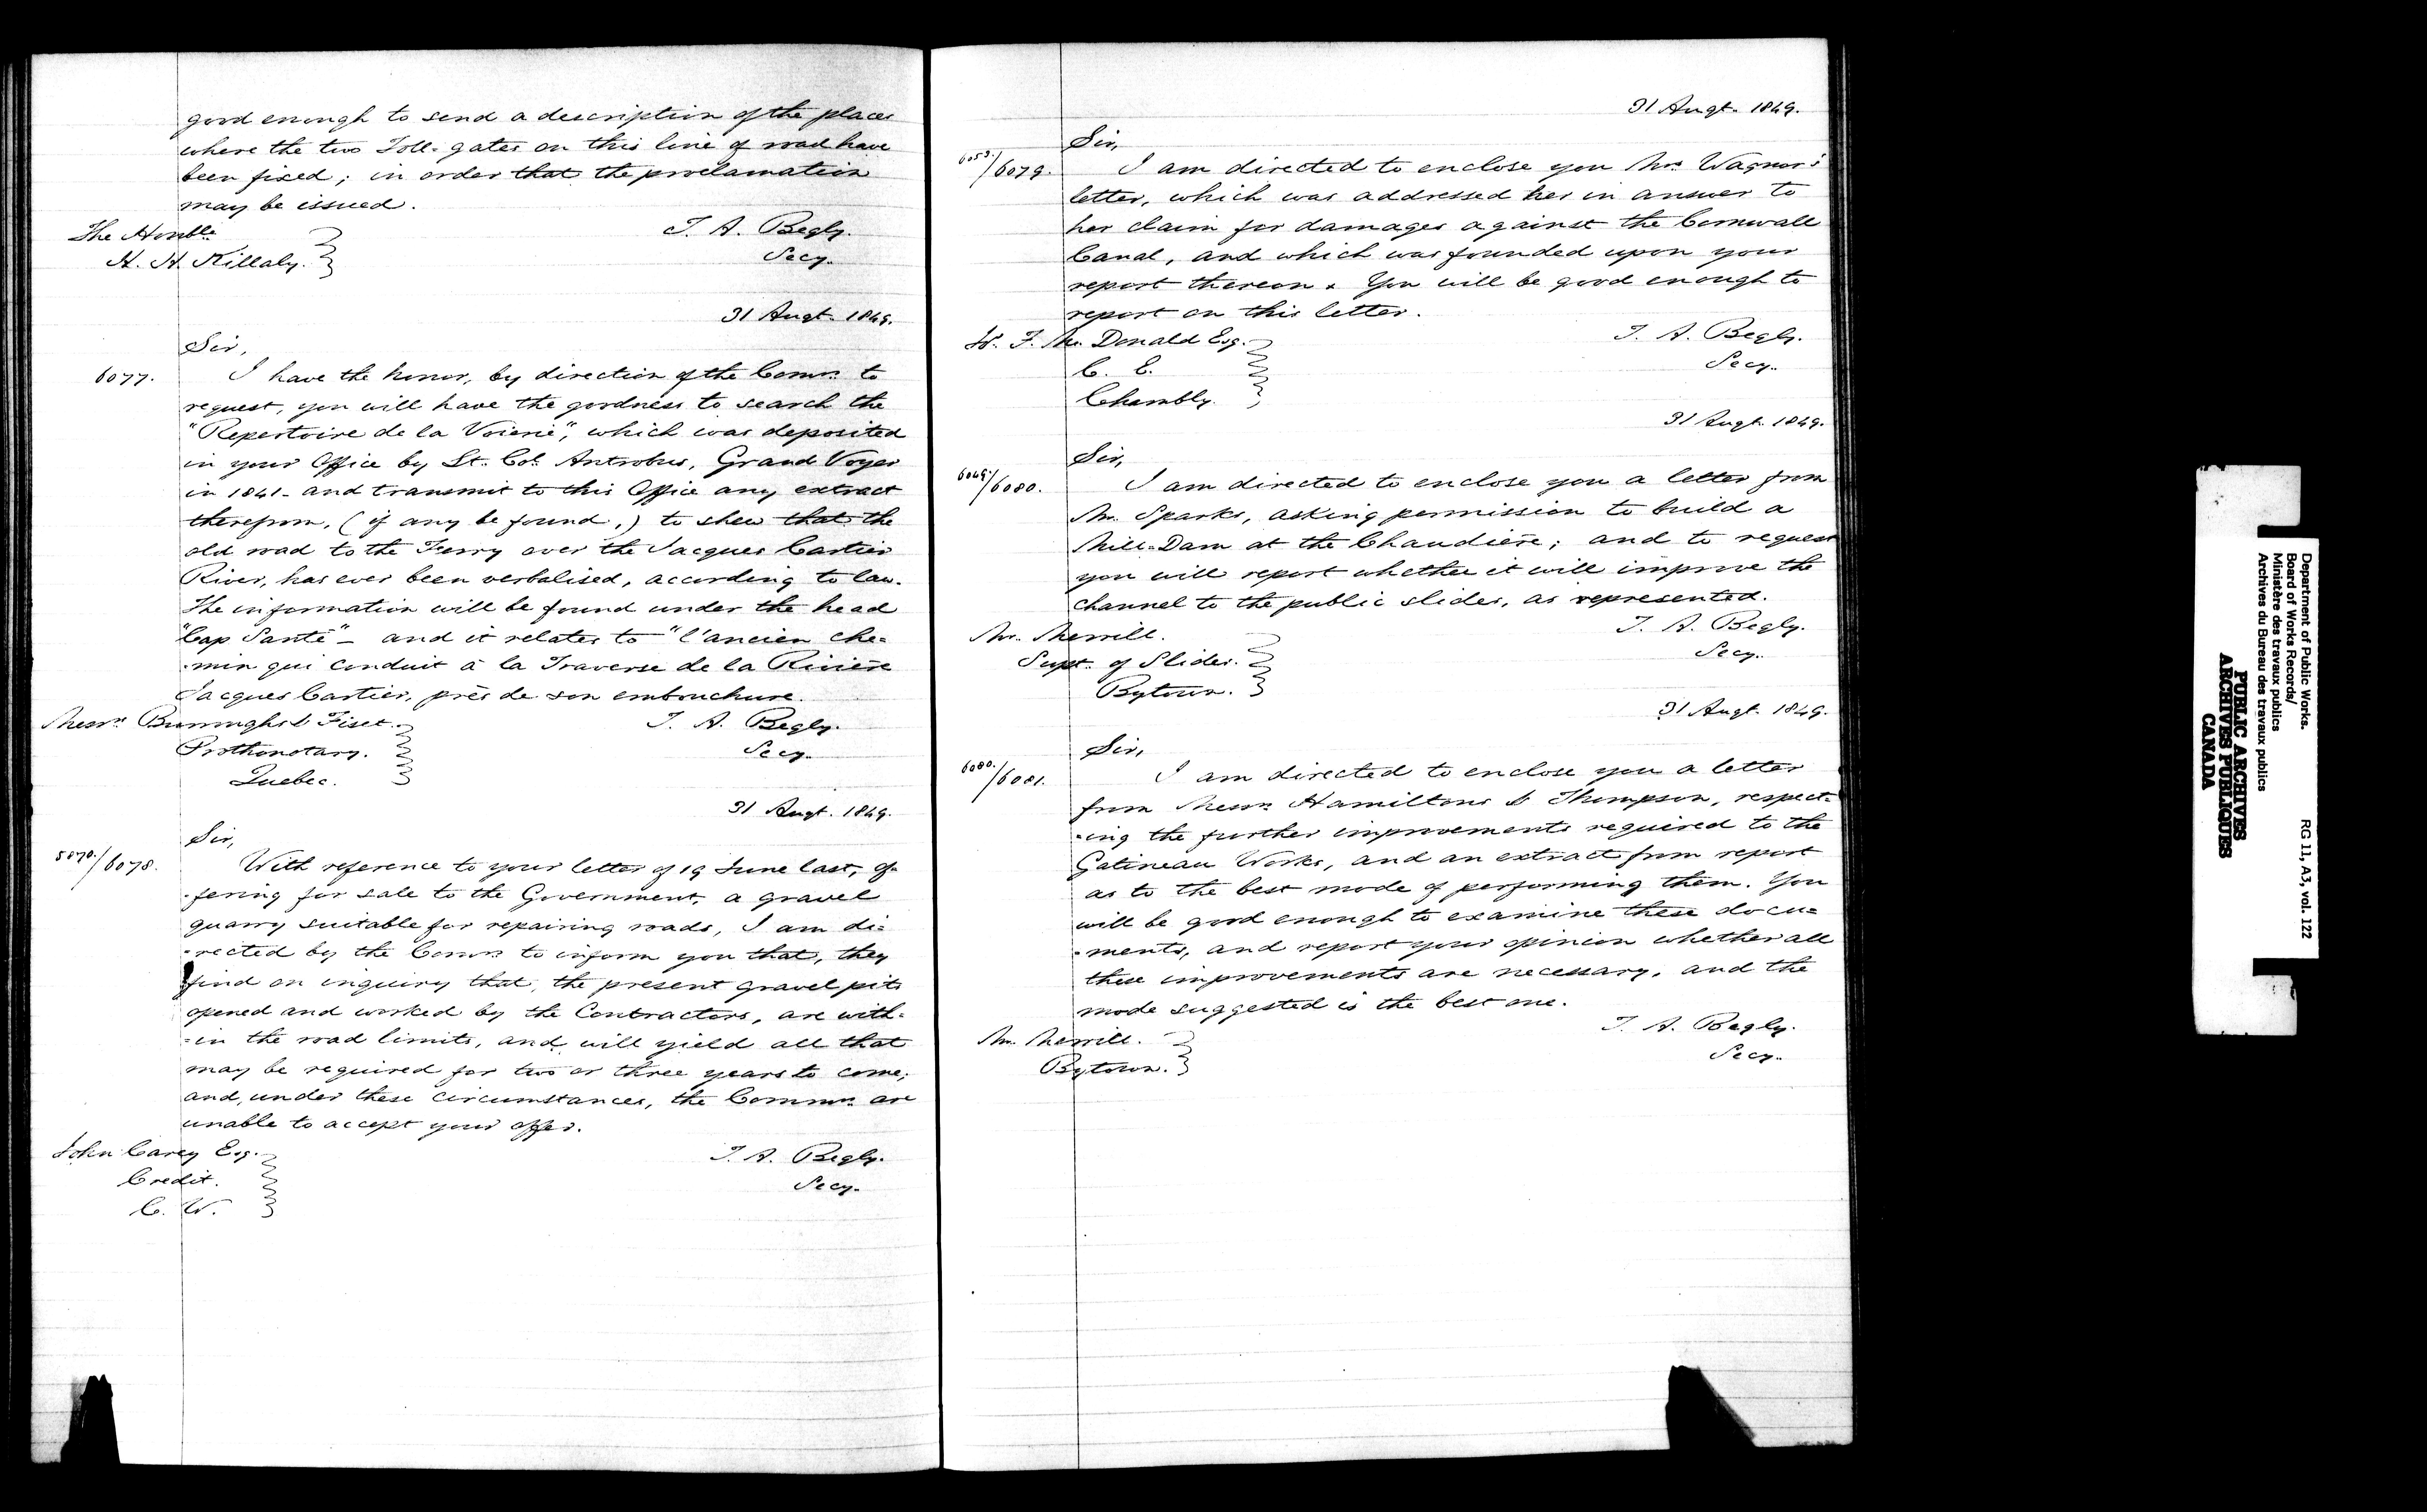 good enough to send a description of the places
where the two Toll-gates on this line of road have
been fixed; in order that the proclamation
may be issued.
The Honble
H. H. Killaly.
T. A. Begly.
Secy.
31 Augt. 1849.
Sir,
6077.
I have the honor, by direction of the Comrs. to
request, you will have the goodness to search the
"Repertoire de la Voierie", which was deposited
in your Office by Lt. Col. Antrobus, Grand Voyer
in 1841 - and transmit to this Office any extract
therefrom, (if any be found,) to shew that the
old road to the Ferry over the Jacques Cartier
River, has ever been verbalised, according to law.
The information will be found under the head
"Cap Santé" - and it relates to "l'ancien che-
-min qui conduit à la Traverse de la Rivière
Jacques Cartier, près de son embouchure.
Messrs. Burroughs & Fiset.
Prothonotary.
Quebec.
T. A. Begly.
Secy.
31 Augt. 1849.
Sir,
5870./6078.
With reference to your letter of 19 June last, of-
-fering for sale to the Government, a gravel
quarry suitable for repairing roads, I am di-
-rected by the Comrs. to inform you that, they
find on inquiry that, the present gravel pits
opened and worked by the Contractors, are with-
-in the road limits, and will yield all that
may be required for two or three years to come;
and, under these circumstances, the Commrs. are
unable to accept your offer.
John Carey Esq.
Credit.
C. W.
T. A. Begly.
Secy.
31 Augt. 1849.
Sir,
6053./6079.
I am directed to enclose you Mrs. Wagner's
letter, which was addressed her in answer to
her claim for damages against the Cornwall
Canal, and which was founded upon your
report thereon. You will be good enough to
report on this letter.
Mc. Donald Esq.
C. E.
Chambly.
T. A. Begly.
Secy.
31 Augt. 1849.
Sir,
6049./6080.
I am directed to enclose you a letter from
Mr. Sparks, asking permission to build a
Mill-Dam at the Chaudière; and to request
you will report whether it will improve the
channel to the public slides, as represented.
Mr. Merrill.
Supt. of Slides.
Bytown.
T. A. Begly.
Secy.
31 Augt. 1849.
Sir,
6080./6081.
I am directed to enclose you a letter
from Messrs. Hamiltons & Thompson, respect-
-ing the further improvements required to the
Gatineau Works, and an extract from report
as to the best mode of performing them. You
will be good enough to examine these docu-
-ments, and report your opinion whether all
these improvements are necessary, and the
mode suggested is the best one.
Mr. Merrill.
Bytown.
T. A. Begly.
Secy.
Department of Public Works.
Board of Works Records/
Ministère des travaux publics
Archives du Bureau des travaux publics
RG 11, A3, vol. 122
PUBLIC ARCHIVES
ARCHIVES PUBLIQUES
CANADA